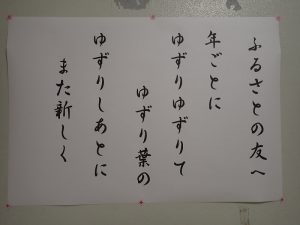 ふるさとの友へ
年ごとに
ゆずりゆずりて
ゆずり葉の
ゆずりしあとに
また新しく